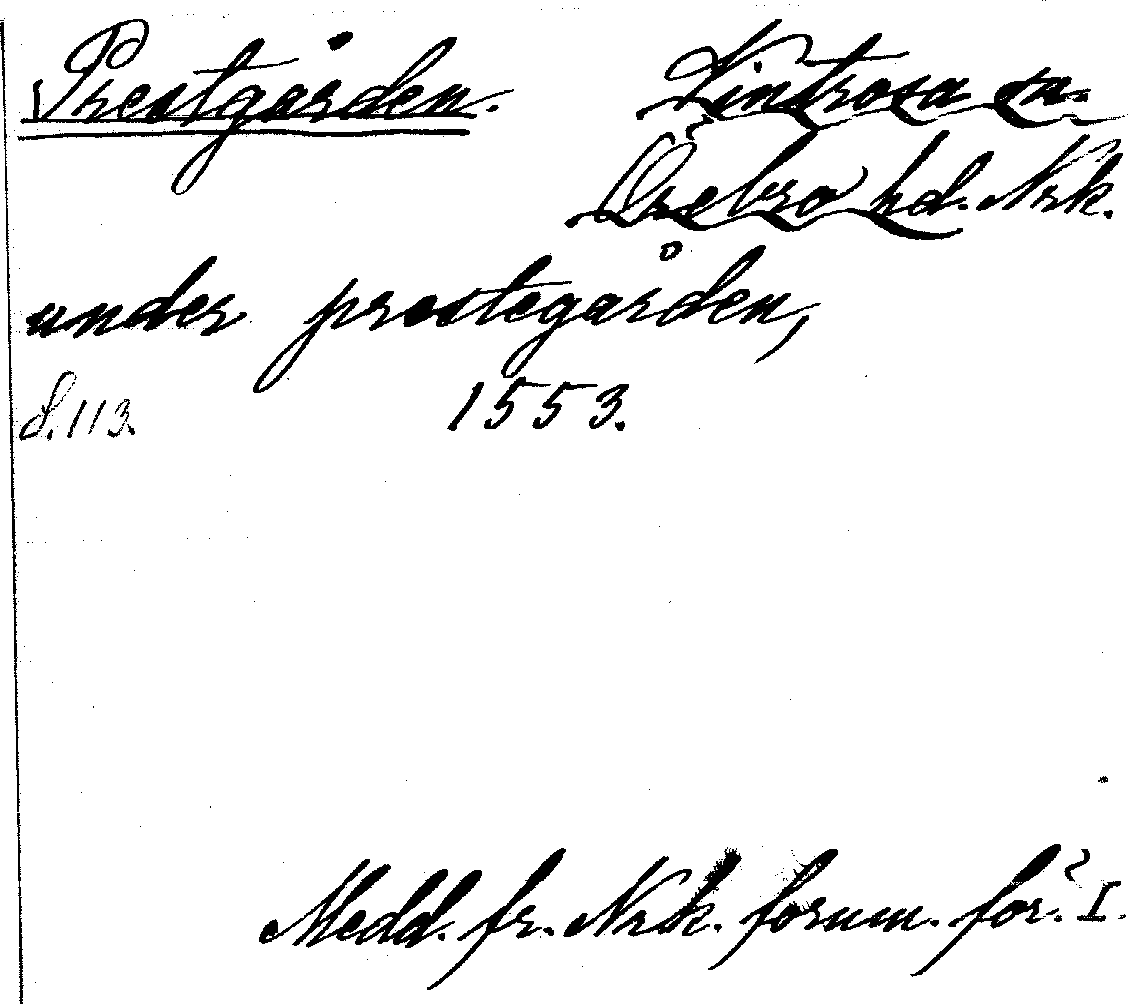 Prestgården. Kintrosa sn.
Örebro hd. Nrk.
under prestegården,
S. 113. 1553.
Medd. fr. Nrk. fornm. för. I.